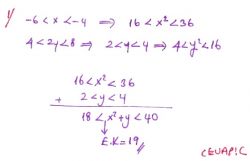 1)
-6<x<-4 ⟹ 16<x²<36
4<2y<8 ⟹ 2<y<4 ⟹ 4<y²<16
16<x²<36
+ 2<y<4
18<x²+y<40
E.K=19
CEVAP:C